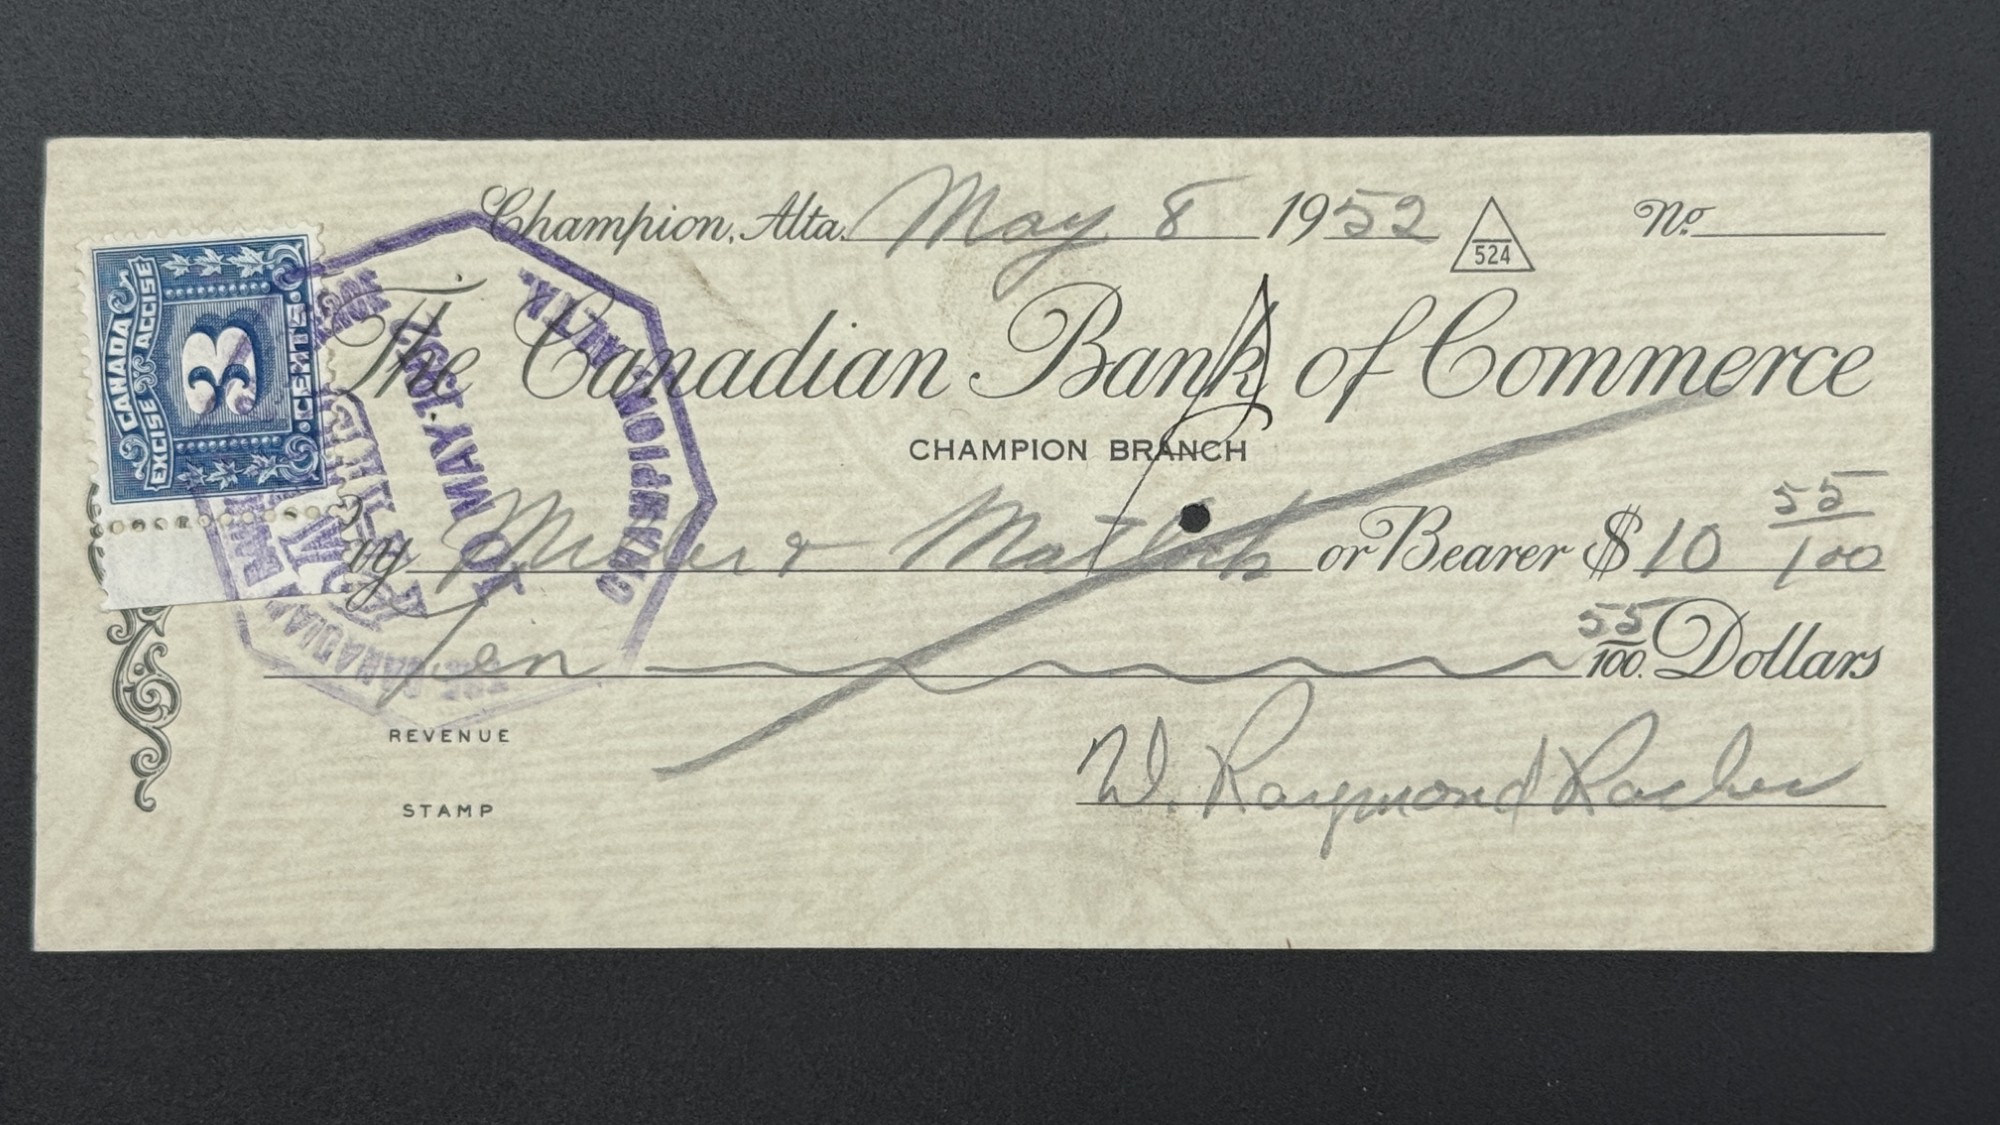 Champion, Alta. May 8 1952 524 No.
The Canadian Bank of Commerce
CHAMPION BRANCH
& or Bearer $10 55/100
Ten 55/100 Dollars
W. Raymond
REVENUE
STAMP
CANADA
EXCISE ACCISE
3
CENTS
THE CANADIAN BANK
PAID
MAY 10 1952
CHAMPION, ALTA.